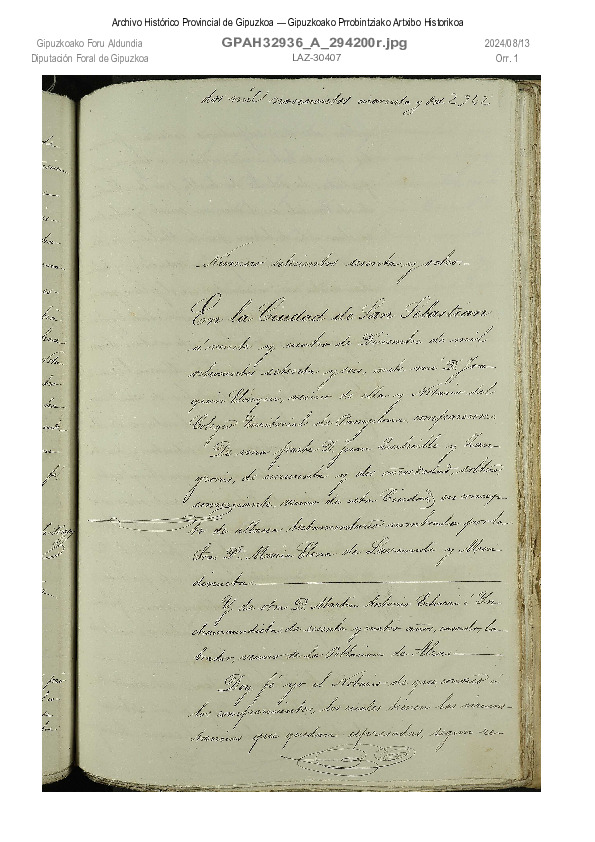 Archivo Histórico Provincial de Gipuzkoa — Gipuzkoako Prrobintziako Artxibo Historikoa
Gipuzkoako Foru Aldundia
Diputación Foral de Gipuzkoa
GPAH32936_A_294200r.jpg
LAZ-30407
2024/08/13
Orr. 1
dos mil novecientos cuarenta y dos 2.942
Número setecientos y ocho
En la Ciudad de San Sebastian
á veinte y cuatro de Diciembre de mil
ochocientos setenta y seis, ante mí D. Joa-
quin vecino de ella y Notario del
Colegio Territorial de Pamplona, comparecen:
De una parte D. Juan y
de cincuenta y dos años edad, soltero
comerciante, vecino de esta Ciudad, en concep-
to de albacea testamentario nombrado por la
Sra. Dª. María Elena de y
Y de otra D. Martin Antonio
de y años, casado, la-
brador, vecino de la Poblacion de Alza
Doy fé yo el Notario de que conozco á
los comparecientes, los cuales tienen las circuns-
tancias que quedan espresadas, segun re-